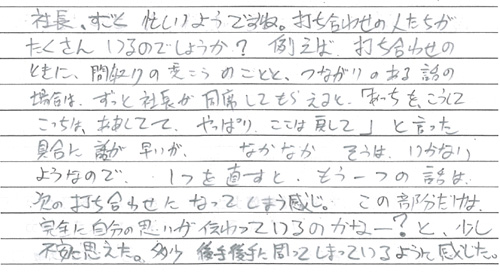 社長、すごく忙しいようですね。打ち合わせの人たちが
たくさんいるのでしょうか？ 例えば 打ち合わせの
ともに、間取りの変こうのことと、つながりのある話の
場合は、ずっと社長が同席してもらえると、「あっちを、こうして
こっちは、ああしてて、やっぱり、ここは戻して」と言った
具合に話が早いが、 なかなか そうは、いかない
ようなので、 1つを直すと、もう一つの話は、
次の打ち合わせに なってしまう感じ。 この部分だけは、
完全に自分の思いが伝わっているのかなー？と、少し
不安に思えた。多少 後手後手に回ってしまっているように感じた。